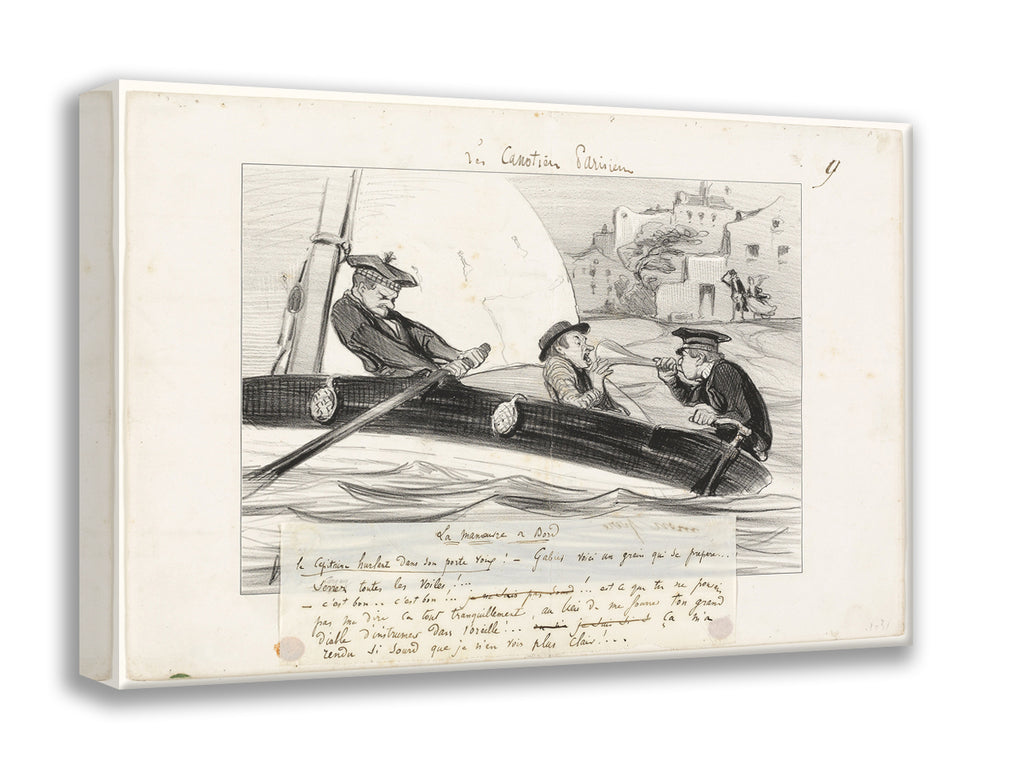 Les Canotiers Parisiens
9
La manœuvre à Bord
le Capitaine hurlant dans son porte voix! – Gabier voici un grain qui se prépare...
Serrez toutes les Voiles!...
– c'est bon.. c'est bon!.. je ne suis pas sourd! est ce que tu ne pouvais
pas me dire ça tout tranquillement, au lieu de me fourrer ton grand
diable d'instrument dans l'oreille!... ça m'a
rendu si sourd que je n'en vois plus clair!...